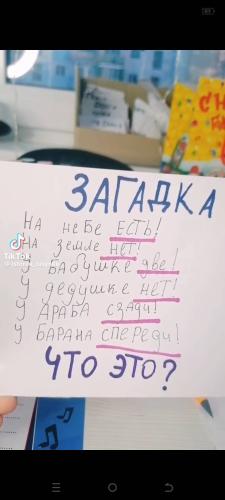 ЗАГАДКА
НА небе ЕСТЬ!
НА земле нет!
У бабушке две!
У дедушке нет!
У АРАБА сзади!
У БАРАНА СПЕРЕДИ!
ЧТО ЭТО?
TikTok